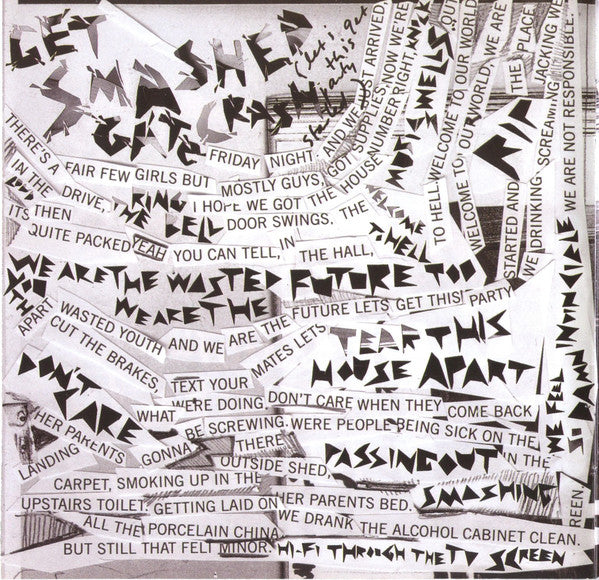 GET SMASHED
GATE CRASH
(let's get
this
party
started
FRIDAY NIGHT AND WE JUST ARRIVED
THERE'S A FAIR FEW GIRLS BUT MOSTLY GUYS, GOT SUPPLIES, NOW WE'RE
IN THE DRIVE, I HOPE WE GOT THE HOUSE NUMBER RIGHT, KNOCK
RING
THE BELL
DOOR SWINGS. THE
MUSIC WELLS OUT
ITS THEN
QUITE PACKED YEAH YOU CAN TELL, IN THE HALL,
TO HELL
WELCOME TO OUR WORLD
WELCOME TO OUR WORLD, WE ARE
STARTED AND
THE PLACE,
WE DRINKING, SCREAMING, JACKING WE
WE ARE NOT RESPONSIBLE.
WE ARE THE WASTED FUTURE TOO
WE ARE THE FUTURE LETS GET THIS PARTY
WASTED YOUTH AND WE ARE THE
APART
CUT THE BRAKES, TEXT YOUR MATES LETS
TEAR THIS
HOUSE APART
DON'T CARE
WHAT WERE DOING. DON'T CARE WHEN THEY COME BACK
HER PARENTS GONNA BE SCREWING. WERE PEOPLE BEING SICK ON THE
WE FEEL
SO DAMN INVINCIBLE
LANDING
THERE
OUTSIDE SHED,
PASSING OUT IN THE
CARPET, SMOKING UP IN THE
SMASHING
UPSTAIRS TOILET, GETTING LAID ON HER PARENTS BED.
ALL THE PORCELAIN CHINA WE DRANK THE ALCOHOL CABINET CLEAN.
BUT STILL THAT FELT MINOR. HI-FI THROUGH THE TV SCREEN